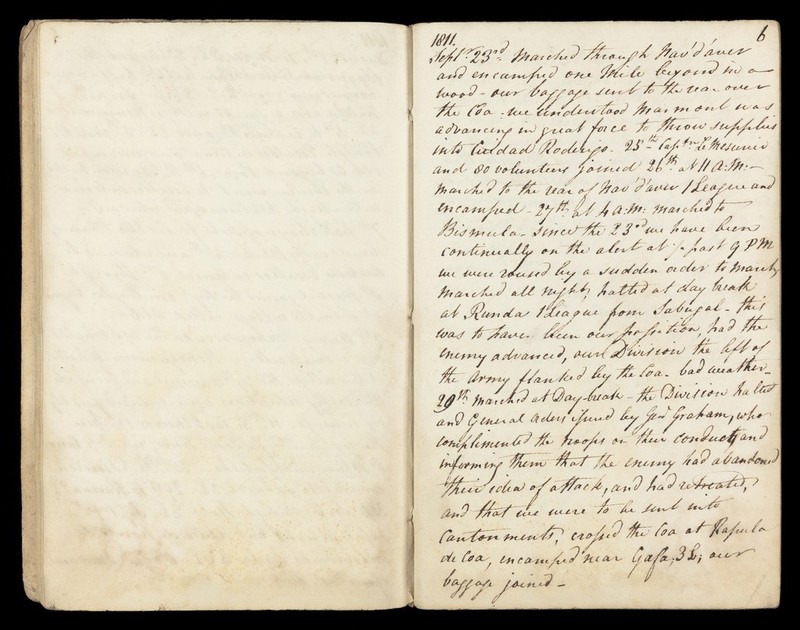 1811. 6
Sept.r 23rd Marched through Nav'd'aver
and encamped one Mile beyond in a
wood - our baggage sent to the rear over
the Coa - we understood Marmont was
advancing in great force to throw supplies
into Ciudad Roderigo. 25th Capt.n Le Mesurier
and 80 volunteers joined 26th at 11 A:M:-
Marched to the rear of Nav'd'aver 1 League and
encamped - 27th at 4 A:M: marched to
Bismula - since the 23rd we have been
continually on the alert at past 9 PM
we were roused by a sudden order to march,
Marched all night, halted at day break
at Runda 1 League from Sabugal - this
was to have been our position, had the
enemy advanced, our Division the left of
the Army flanked by the Coa. bad weather -
29th marched at Day-break - the Division halted
and General orders issued by Gen.l Graham, who
complimented the troops on their conduct, and
informing them that the enemy had abandoned
their idea of attack, and had retreated,
and that we were to be sent into
Cantonments, crossed the Coa at Rapula
de Coa, encamped near 3 L; our
baggage joined -